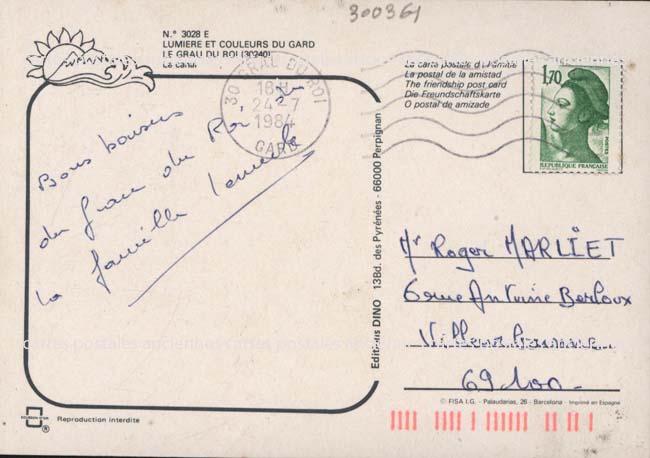 300361
N.° 3028 E
LUMIERE ET COULEURS DU GARD
LE GRAU DU ROI (30240)
Le canal
30 GRAU DU ROI
18H
24-7
1984
GARD
La carte postale de l'Amitié
La postal de la amistad
The friendship post card
Die Freundschaftskarte
O postal de amizade
1,70
POSTES
REPUBLIQUE FRANÇAISE
Bons baisers
du Grau du Roi, de
la famille
Editions DINO 13Bd. des Pyrénées - 66000 Perpignan
Mr Roger MARLIET
6 rue Antoine Berloux
Villeurbanne
69100-
cartes postales anciennes cartes postales anciennes
© FISA I.G. - Palaudarias, 26 - Barcelona - Imprimé en Espagne
Reproduction interdite
®